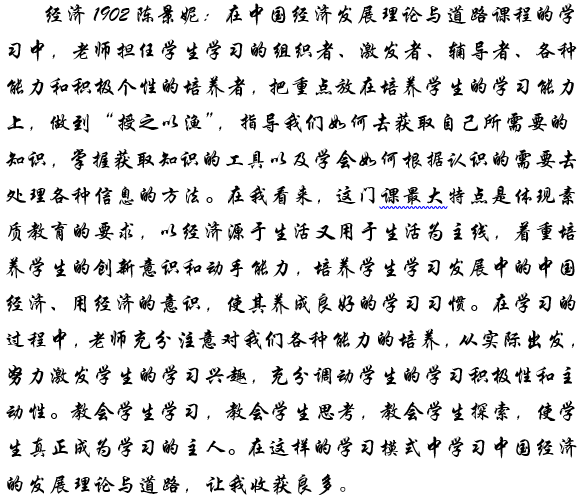 经济 1902 陈景妮：在中国经济发展理论与道路课程的学
习中，老师担任学生学习的组织者、激发者、辅导者、各种
能力和积极个性的培养者，把重点放在培养学生的学习能力
上，做到“授之以渔”，指导我们如何去获取自己所需要的
知识，掌握获取知识的工具以及学会如何根据认识的需要去
处理各种信息的方法。在我看来，这门课最大特点是体现素
质教育的要求，以经济源于生活又用于生活为主线，着重培
养学生的创新意识和动手能力，培养学生学习发展中的中国
经济、用经济的意识，使其养成良好的学习习惯。在学习的
过程中，老师充分注意对我们各种能力的培养，从实际出发，
努力激发学生的学习兴趣，充分调动学生的学习积极性和主
动性。教会学生学习，教会学生思考，教会学生探索，使学
生真正成为学习的主人。在这样的学习模式中学习中国经济
的发展理论与道路，让我收获良多。